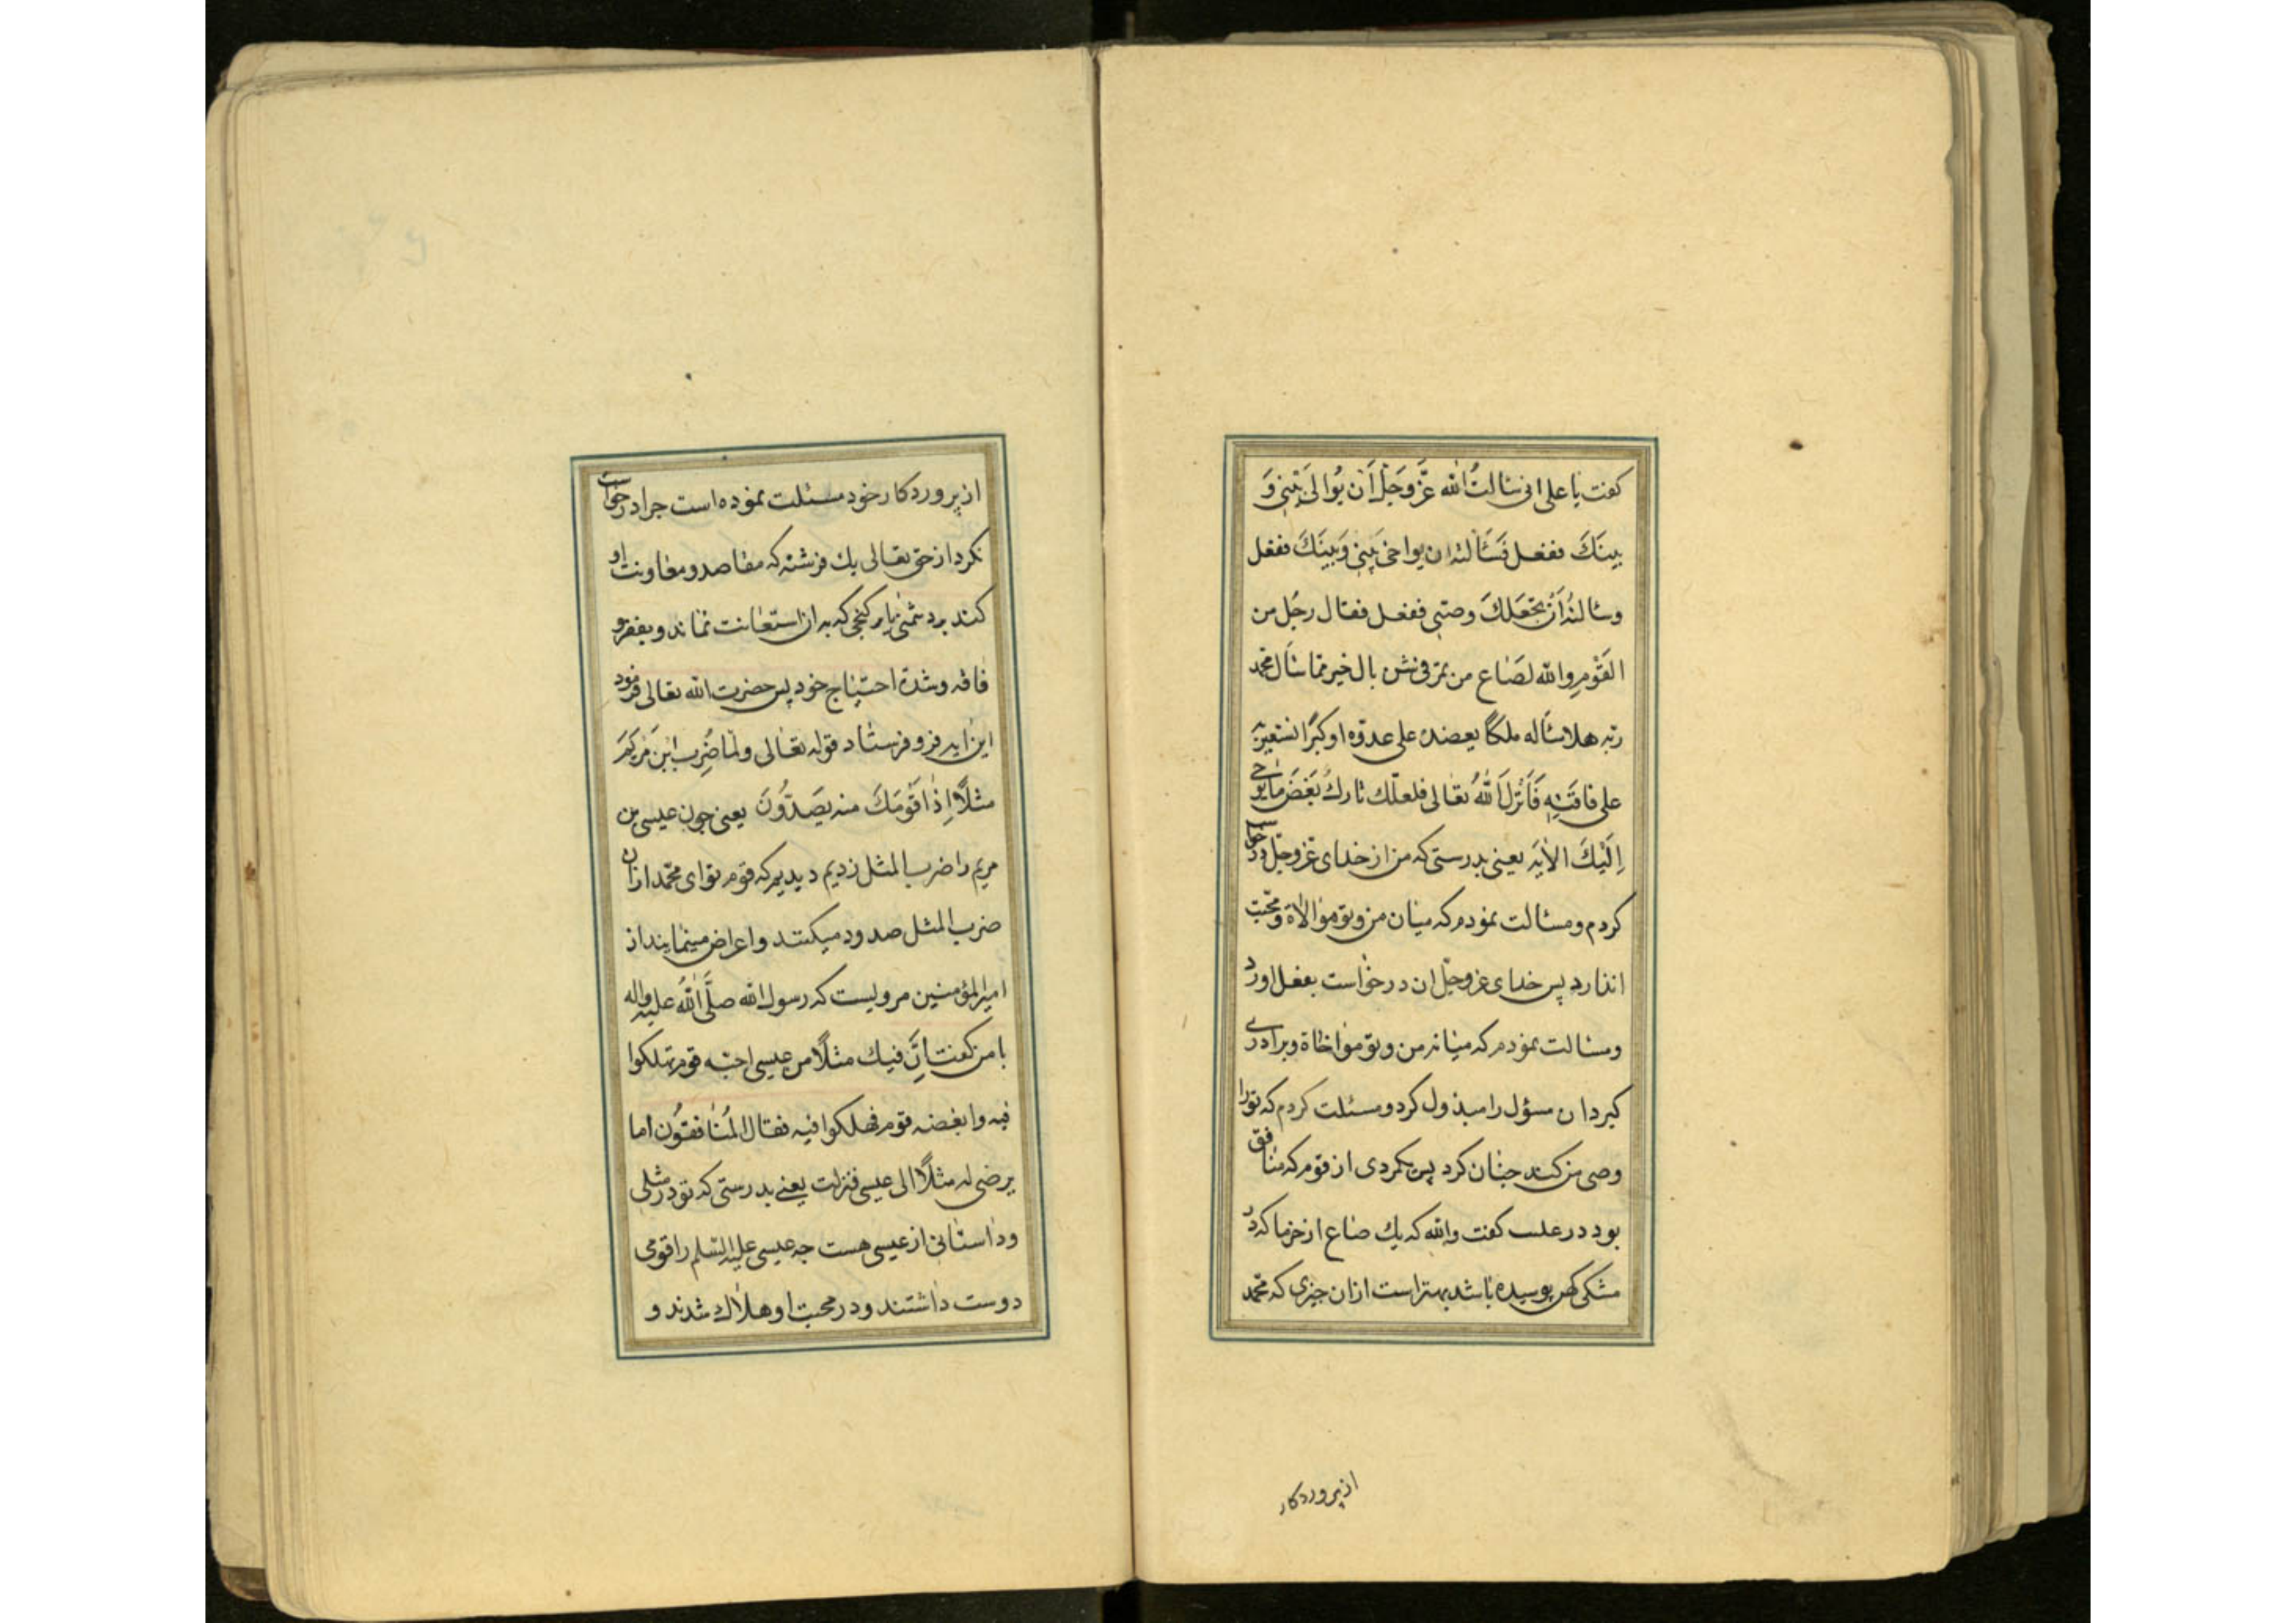 كفت يا على انى سَالتُ الله عَزَّ وَجَلَّ اَن يُوالىَ بَينى وَ
بينَكَ ففعل فَسَالته ان يواخى بَينى وَبينَكَ ففعل
وسالتهُ اَن يَجْعَلَكَ وصيّى ففعل فقال رجُل من
القَوْم والله لصَاع من تمر فى شن بال خير ممّا سَال محمّد
ربّه هلا سَاله ملكًا يعضده على عدوّه او كنزًا يستعين به
على فاقَتِهِ فَاَنْزَلَ اللهُ تعالى فلعلّك تارك بَعْضَ مَا يُوحى
اِلَيْكَ الاٰيَه يعنى بدرستى كه من از خداى عزوجل درخواست
كردم و مسالت نمودم كه ميان من و تو موالاة و محبّت
اندازد پس خداى عزوجل ان درخواست بفعل اورد
و مسالت نمودم كه ميانه من و تو مواخاة و برادرى
كيرد ان مسؤل را مبذول كرد و مسئلت كردم كه تو را
وصى من كند چنان كرد پس مردى از قوم كه منافق
بود در عقب كفت والله كه يك صاع از خرما كه در
مشكى كهن پوسيده باشد بهتر است از ان چيزى كه محمّد
از پروردكار
از پروردكار خود مسئلت نموده است چرا درخواست
نكرد از حق تعالى يك فرشته كه مقاصد و معاونت او
كند بر دشمنى يا بر كنجى كه به ان استعانت نمايد و بفقر و
فاقه و شدة احتياج خود پس حضرت الله تعالى فرمود
اين ايه فرو فرستاد قوله تعالى ولمّا ضُرِب ابْنَ مَرْيَمَ
مثلًا اِذَا قَوْمَكَ منه يَصَدُّونَ يعنى چون عيسى بن
مريم را ضرب المثل زديم ديديم كه قوم تو اى محمّد از ان
ضرب المثل صدود ميكنند و اعراض مينمايند از
اميرالمؤمنين مرويست كه رسول الله صَلَّى اللهُ عليه واله
با من كفت اِنَّ فيك مثلًا من عيسى احبّه قوم فهلكوا
فيه وابغضه قوم فهلكوا فيه فقال المُنافقُون اما
يرضى له مثلًا الى عيسى فنزلت يعنى بدرستى كه تو در مثلى
و داستانى از عيسى هست چه عيسى عليه السّلم را قومى
دوست داشتند و در محبت او هلاك شدند و